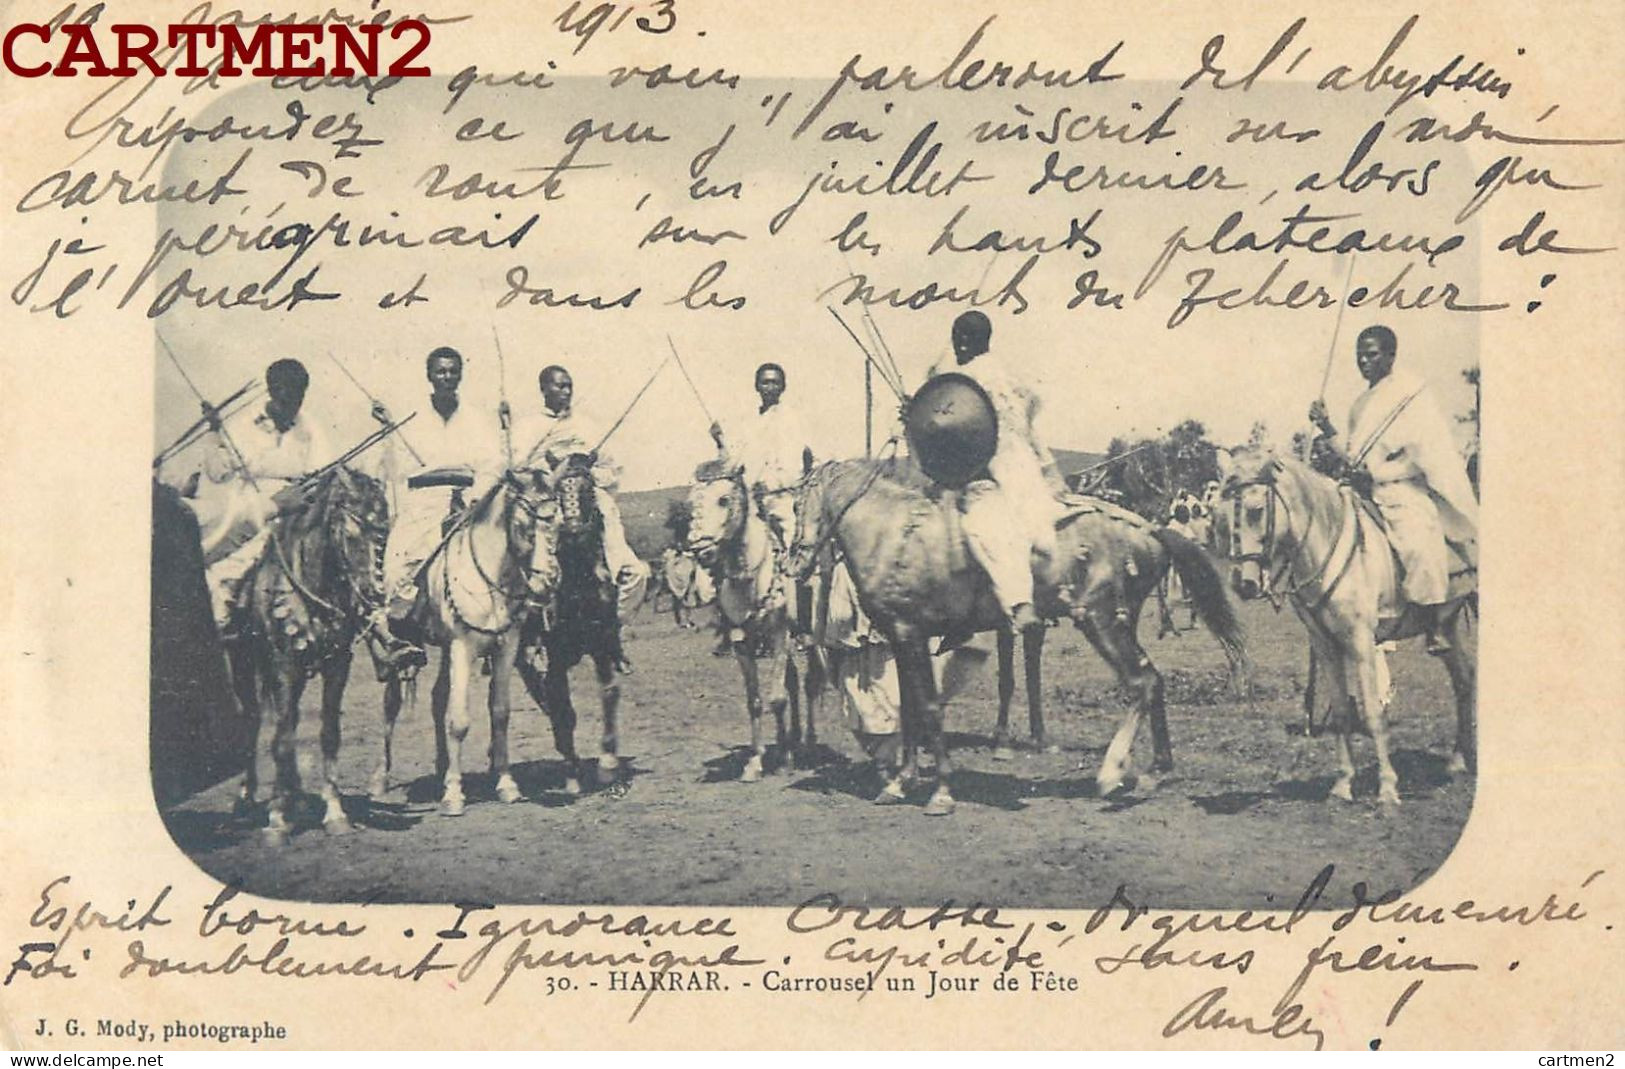 Janvier 1913.
CARTMEN2
à ceux qui vous parleront de l'abyssin,
répondez ce que j'ai inscrit sur mon
carnet de route, en juillet dernier, alors que
je pérégrinais sur les hauts plateaux de
l'Ouest et dans les monts du Tchercher :
Esprit borné. Ignorance Crasse. Orgueil démesuré.
Foi doublement punique. Cupidité sans frein.
30. - HARRAR. - Carrousel un Jour de Fête
!
J. G. Mody, photographe
www.delcampe.net
cartmen2